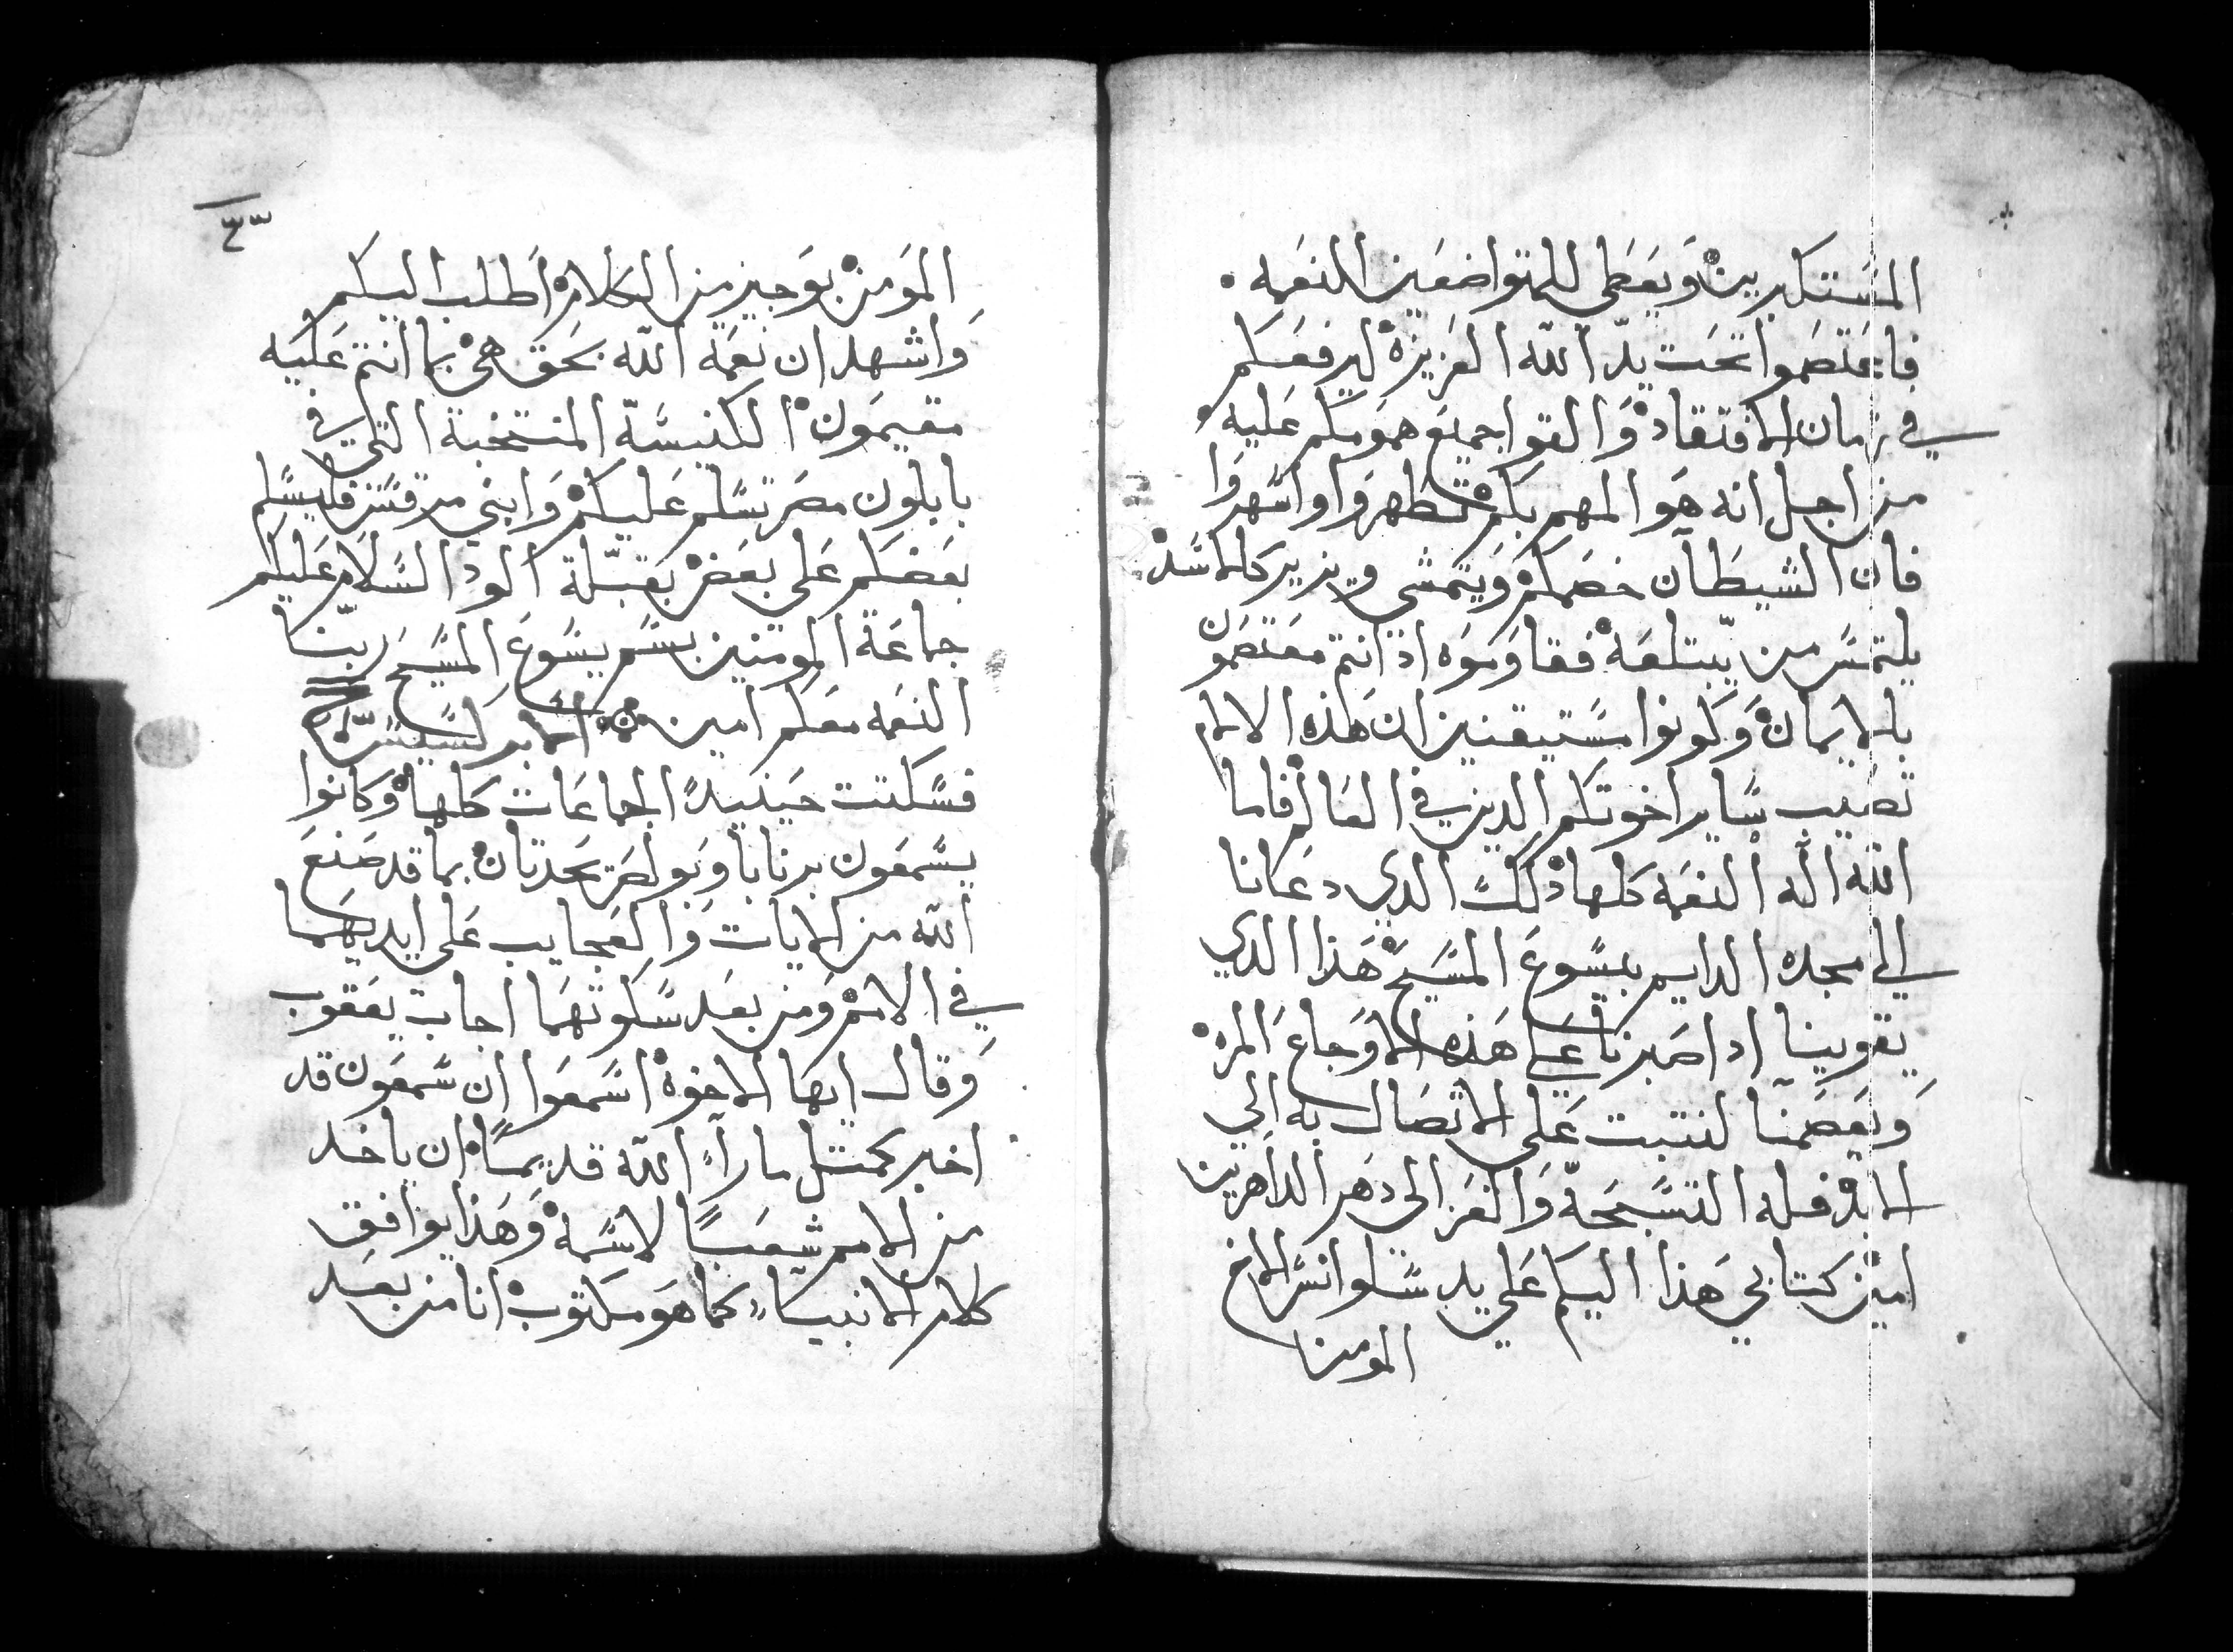 المستكبرين ويعطى للمتواضعين النعمه
فاعتصموا تحت يد الله العزيزه ليرفعكم
في زمان الافتقاد والقوا جميع همومكم عليه
من اجل انه هو المهم بكم تطهروا واسهروا
فان الشيطان خصمكم ويتمشى ويزير كالاسد
يلتمس من يبتلعه فقاوموه اد انتم معتصمون
بالايمان وكونوا مستيقنين ان هذه الالام
تصيب ساير اخوتكم الدين في العالم فاما
الله اله النعمه كلها ذلك الدي دعانا
الى مجده الدايم بيسوع المسيح هذا الدي
يقوينا ادا صبرنا على هذه الاوجاع المره
ويعصمنا لنتبت على الاتصال به الي
الابد فله التسبحه والعز الى دهر الداهرين
امين كتابي هذا اليكم على يد سلوانس الاخ
المومن
٤٣
المومن بوجيز من الكلام اطلب اليكم
واشهد ان نعمه الله بحق هى بما انتم عليه
مقيمون الكنيسة المنتخبة التي في
بابلون مصر تسلم عليكم وابني مرقس فليسلم
بعضكم على بعض بقبلة الود السلام عليكم
جماعة المومنين بسم يسوع المسيح ربنا
النعمه معكم امين
فسكتت حينيدً الجماعات كلها وكانوا
يسمعون برنابا وبولص يحدتان بما قد صنع
الله من الايات والعجايب على ايديهما
في الامم ومن بعد سكوتهما اجاب يعقوب
وقال ايها الاخوة اسمعوا ان سمعون قد
اخبر كمتل ما رآء الله قديمًا ان ياخد
من الامم شعبًا لاسمه وهذا يوافق
كلام الانبيآء كما هو مكتوب انا من بعد